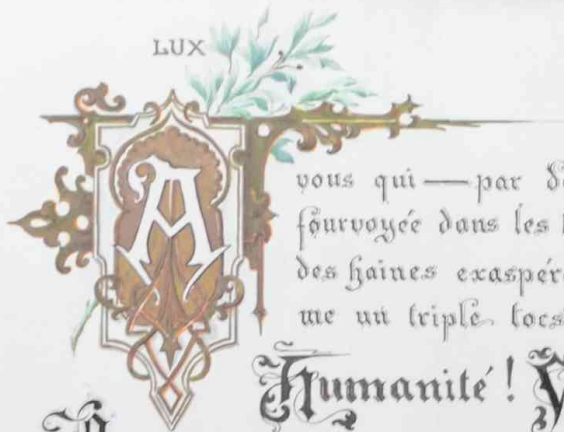 LUX
A
vous qui — par
fourvoyée dans les
des haines
me un triple
Humanité !